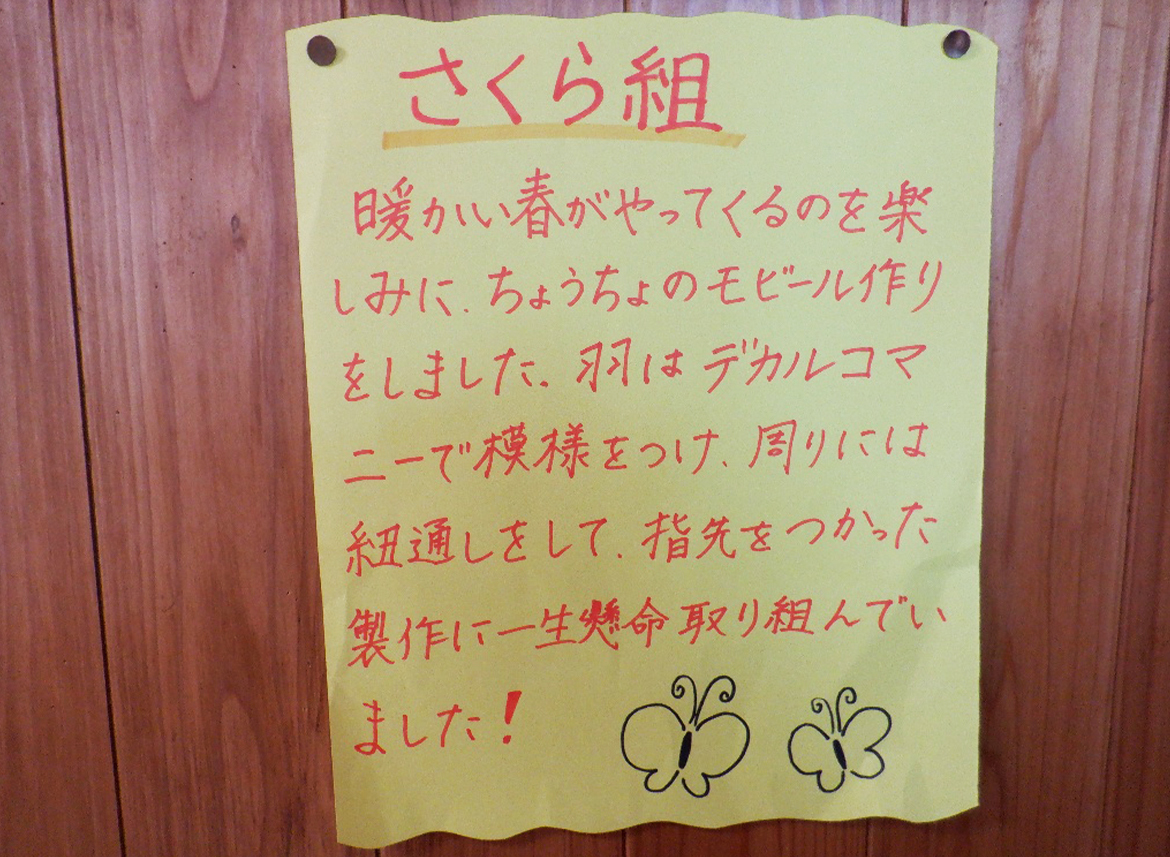 さくら組
暖かい春がやってくるのを楽
しみに、ちょうちょのモビール作り
をしました。羽はデカルコマ
ニーで模様をつけ、周りには
紐通しをして、指先をつかった
製作に一生懸命取り組んでい
ました!